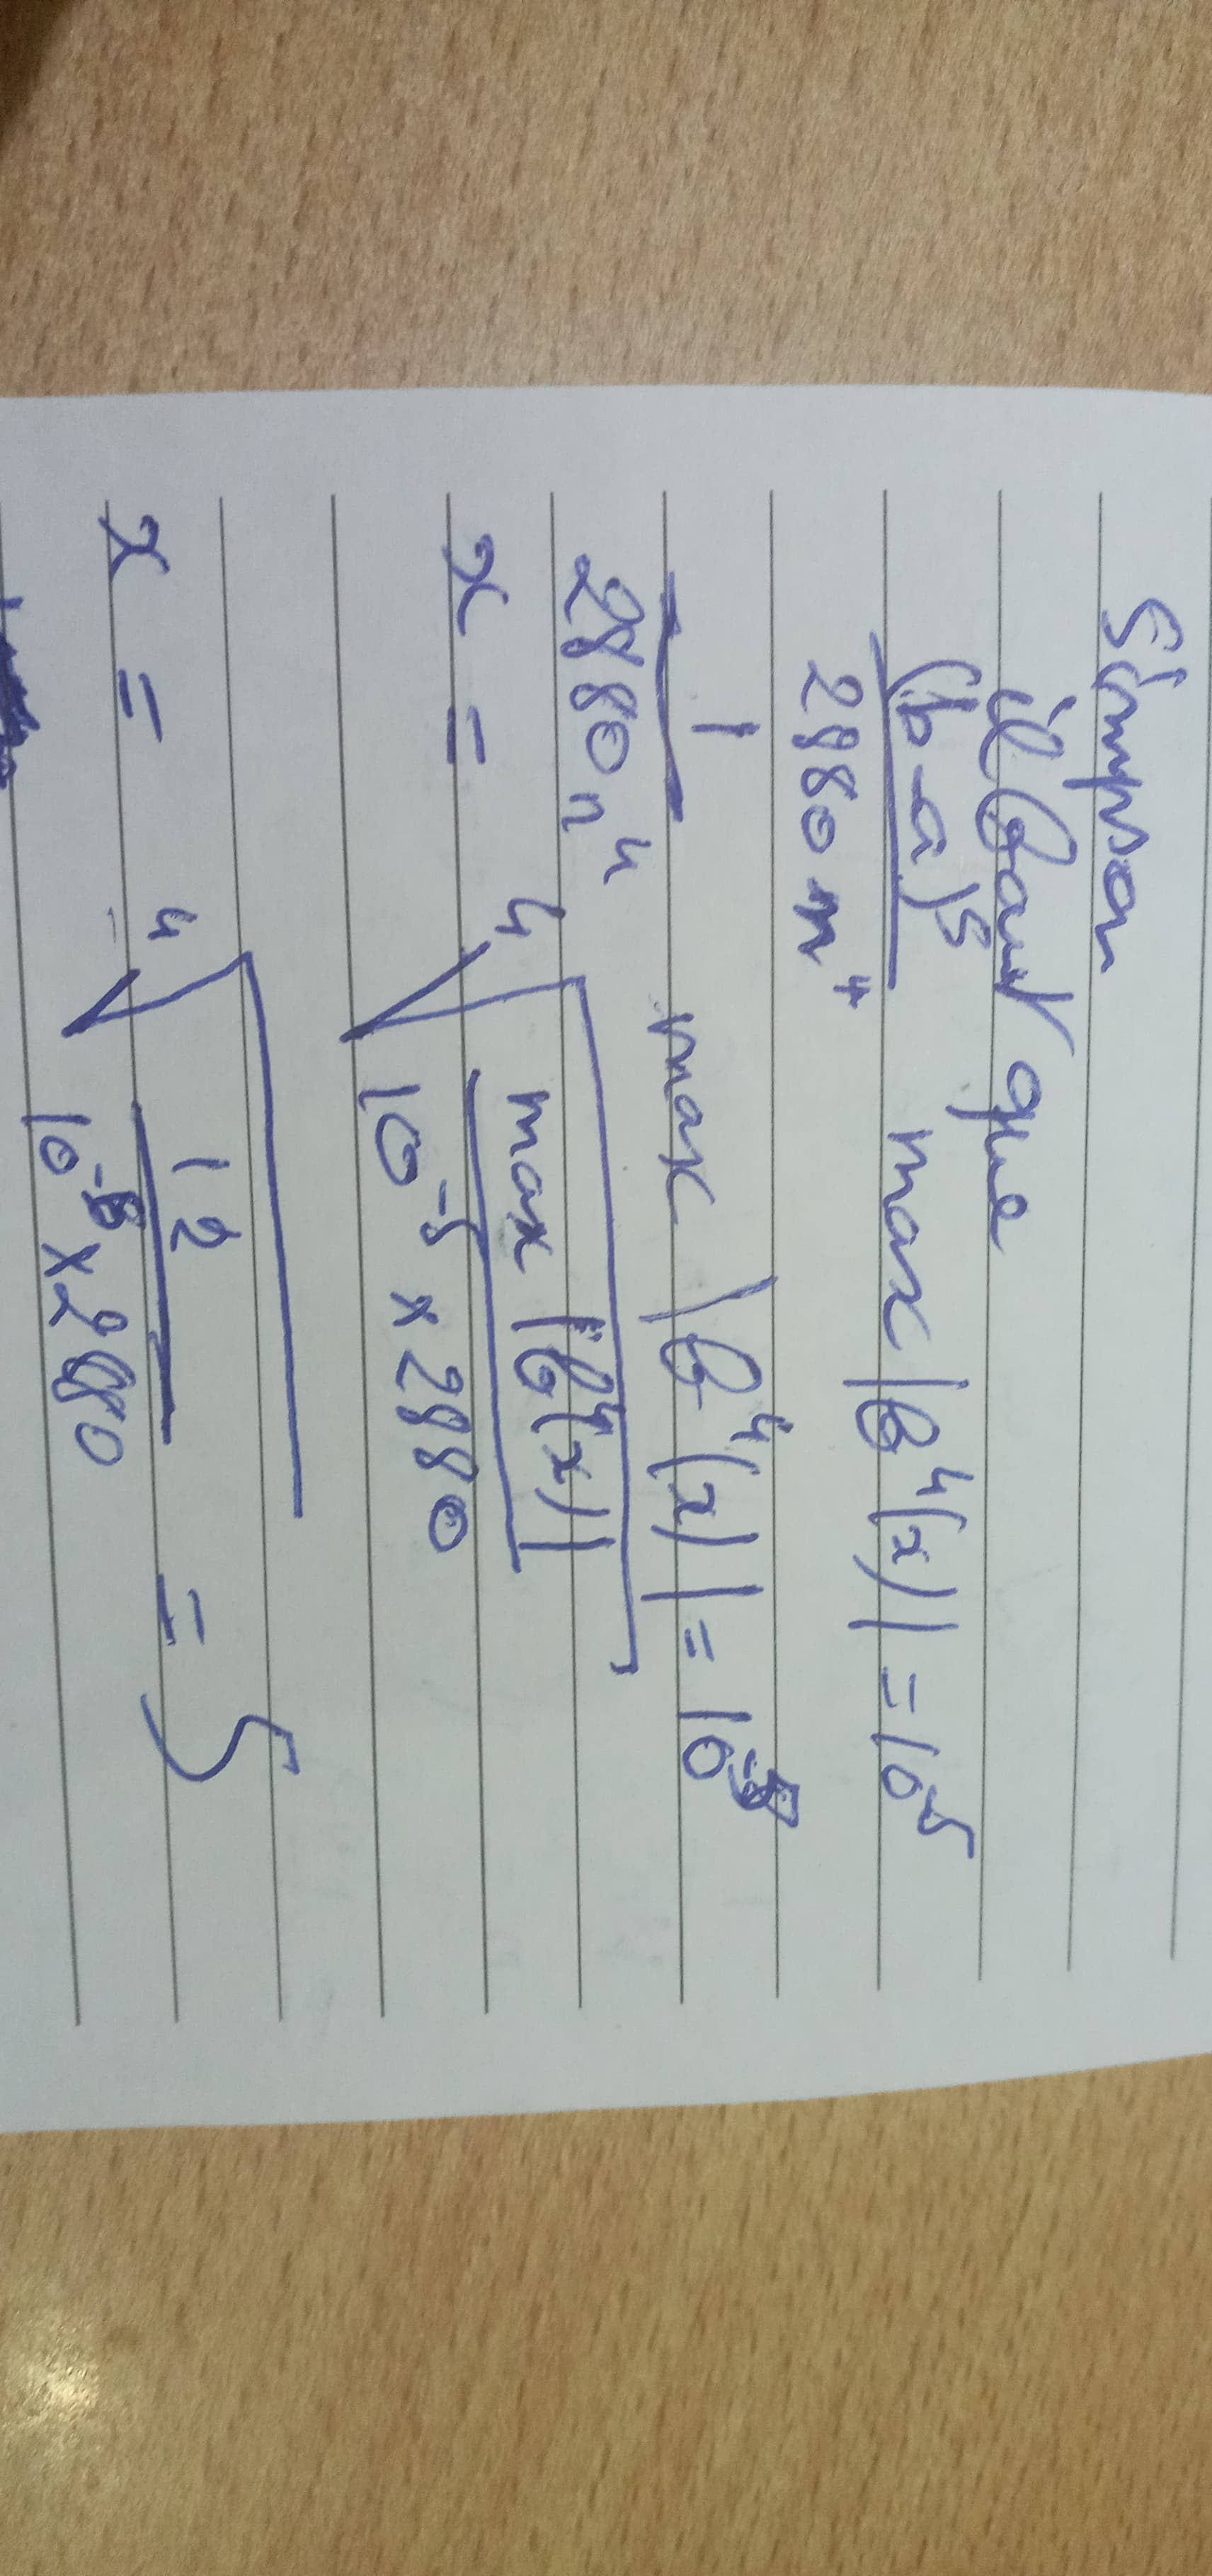 Simpson
il faut que
(b-a)⁵ / 2880 n⁴ max |f⁴(x)| = 10⁻⁵
1 / 2880 n⁴ max |f⁴(x)| = 10⁻⁵
x = ⁴√(max |f⁴(x)| / 10⁻⁵ × 2880)
x = ⁴√(12 / 10⁻⁵ × 2880) = 5